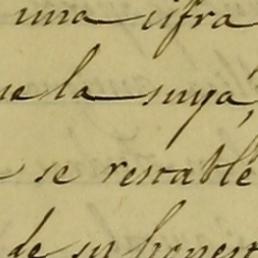 una cifra
ue la suya,
se restable
de su honest